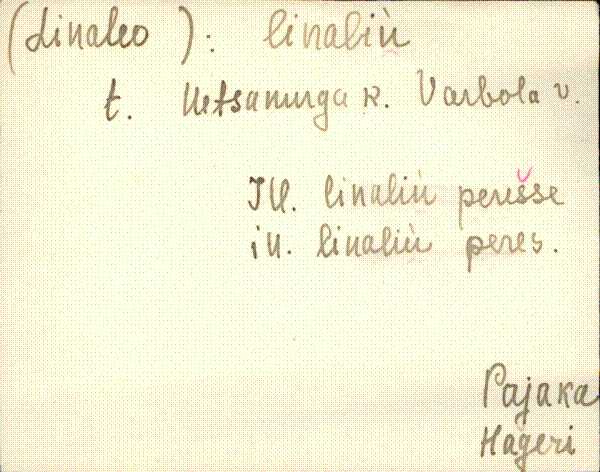 (Linaleo): linaliù
t. Metsanurga k. Varbola v.
Ill. linaliùperešse
in. linaliù peres.
Pajaka
Hageri